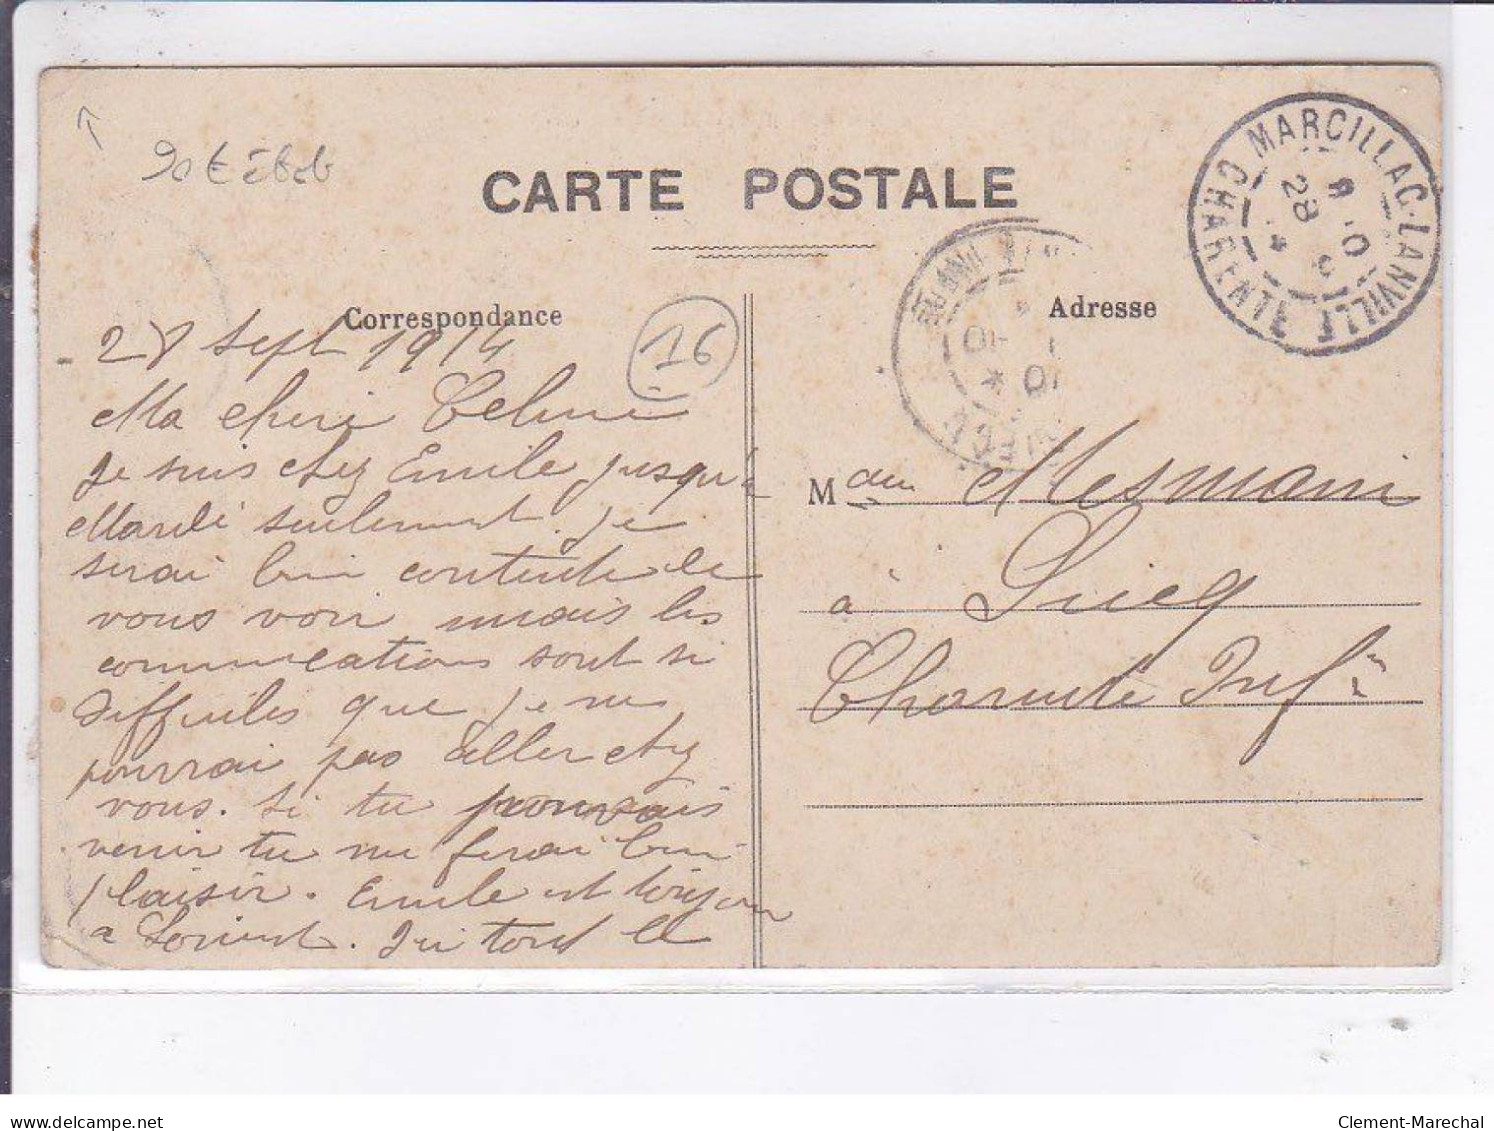 90 €
CARTE POSTALE
MARCILLAC-LANVILLE
CHARENTE
28
Correspondance
16
Adresse
27 Sept 1914
Ma cheri Celine
Je suis chez Emile jusqu'à
Mardi seulement. Je
serai bien contente de
vous voir mais les
communications sont si
difficiles que je ne
pourrai pas aller chez
vous. Si tu pouvais
venir tu me ferai bien
plaisir. Emile est toujour
a Lorient. Ici tout le
Mdam Mesmain
à Siecq
Charente Infre
delcampe.net
Clement-Marechal